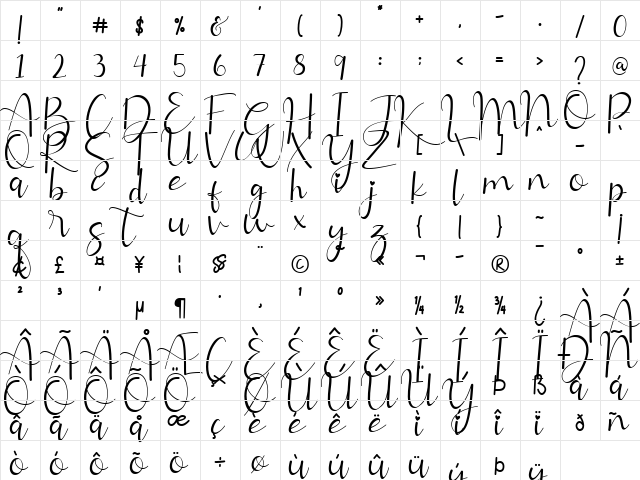 ! " # $ % & ' ( ) * + , - . / 0
1 2 3 4 5 6 7 8 9 : ; < = > ? @
A B C D E F G H I J K L M N O P
Q R S T U V W X Y Z [ \ ] ^ _ `
a b c d e f g h i j k l m n o p
q r s t u v w x y z { | } ~ ¡
¢ £ ¤ ¥ ¦ § ¨ © « ¬ - ® ¯ ° ±
² ³ ´ µ ¶ · ¸ ¹ º » ¼ ½ ¾ ¿ À Á
Â Ã Ä Å Æ Ç È É Ê Ë Ì Í Î Ï Ð Ñ
Ò Ó Ô Õ Ö × Ø Ù Ú Û Ü Ý Þ ß à á
â ã ä å æ ç è é ê ë ì í î ï ð ñ
ò ó ô õ ö ÷ ø ù ú û ü ý þ ÿ